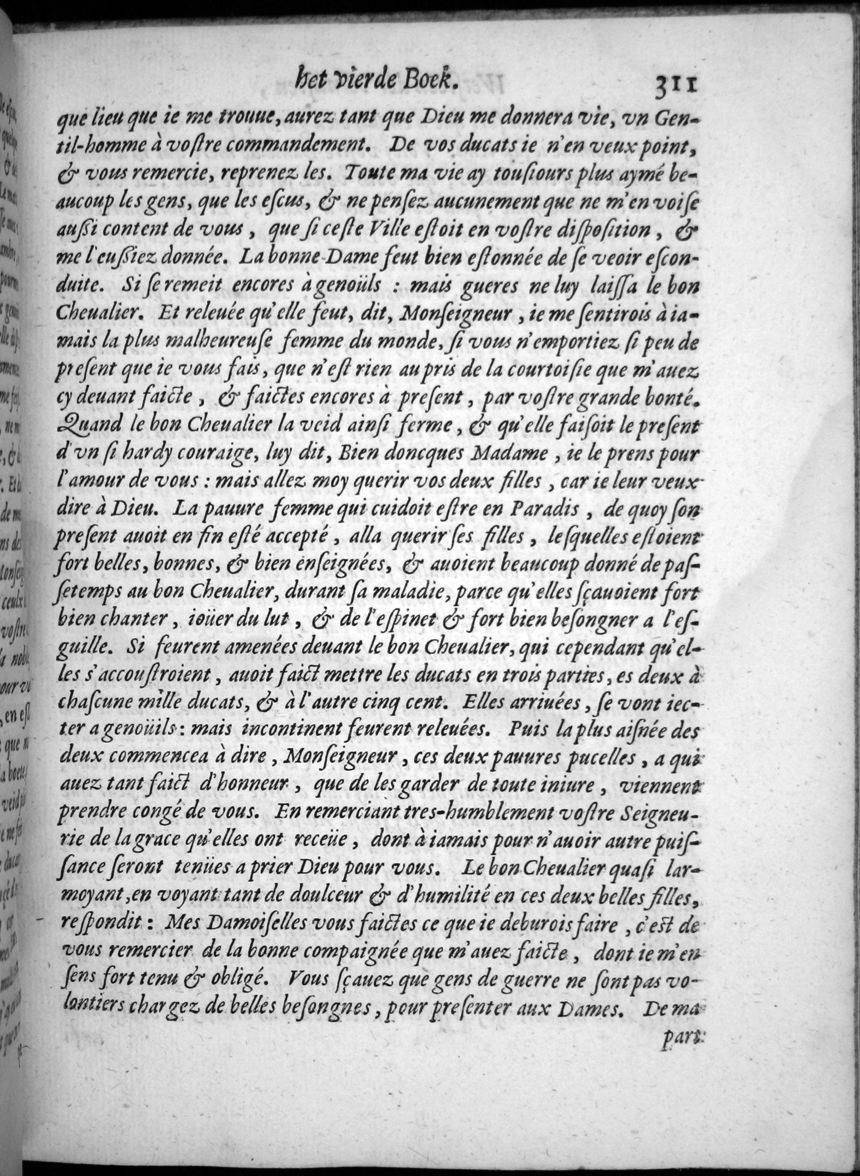 het vierde Boek. 311
que lieu que ie me trouue, aurez tant que Dieu me donnera vie, vn Gen-
til-homme à voſtre commandement. De vos ducats ie n'en veux point,
& vous remercie, reprenez les. Toute ma vie ay touſiours plus aymé be-
aucoup les gens, que les eſcus, & ne penſez aucunement que ne m'en voiſe
auſſi content de vous, que ſi ceſte Ville eſtoit en voſtre diſpoſition, &
me l'euſſiez donnée. La bonne Dame feut bien eſtonnée de ſe veoir eſcon-
duite. Si ſe remeit encores à genoüls : mais gueres ne luy laiſſa le bon
Cheualier. Et releuée qu'elle feut, dit, Monſeigneur, ie me ſentirois à ia-
mais la plus malheureuſe femme du monde, ſi vous n'emportiez ſi peu de
preſent que ie vous fais, que n'eſt rien au pris de la courtoiſie que m'auez
cy deuant faicte, & faictes encores à preſent, par voſtre grande bonté.
Quand le bon Cheualier la veid ainſi ferme, & qu'elle faiſoit le preſent
d'vn ſi hardy couraige, luy dit, Bien doncques Madame, ie le prens pour
l'amour de vous : mais allez moy querir vos deux filles, car ie leur veux
dire à Dieu. La pauure femme qui cuidoit eſtre en Paradis, de quoy ſon
preſent auoit en fin eſté accepté, alla querir ſes filles, leſquelles eſtoient
fort belles, bonnes, & bien enſeignées, & auoient beaucoup donné de paſ-
ſetemps au bon Cheualier, durant ſa maladie, parce qu'elles ſçauoient fort
bien chanter, ioüer du lut, & de l'eſpinet & fort bien beſongner a l'eſ-
guille. Si feurent amenées deuant le bon Cheualier, qui cependant qu'el-
les s'accouſtroient, auoit faict mettre les ducats en trois parties, es deux à
chaſcune mille ducats, & à l'autre cinq cent. Elles arriuées, ſe vont iec-
ter a genoüils : mais incontinent feurent releuées. Puis la plus aiſnée des
deux commencea à dire, Monſeigneur, ces deux pauures pucelles, a qui
auez tant faict d'honneur, que de les garder de toute iniure, viennent
prendre congé de vous. En remerciant tres-humblement voſtre Seigneu-
rie de la grace qu'elles ont receüe, dont à iamais pour n'auoir autre puiſ-
ſance ſeront tenües a prier Dieu pour vous. Le bon Cheualier quaſi lar-
moyant, en voyant tant de doulceur & d'humilité en ces deux belles filles,
reſpondit : Mes Damoiſelles vous faictes ce que ie deburois faire, c'eſt de
vous remercier de la bonne compaignée que m'auez faicte, dont ie m'en
ſens fort tenu & obligé. Vous ſçauez que gens de guerre ne ſont pas vo-
lontiers chargez de belles beſongnes, pour preſenter aux Dames. De ma
part